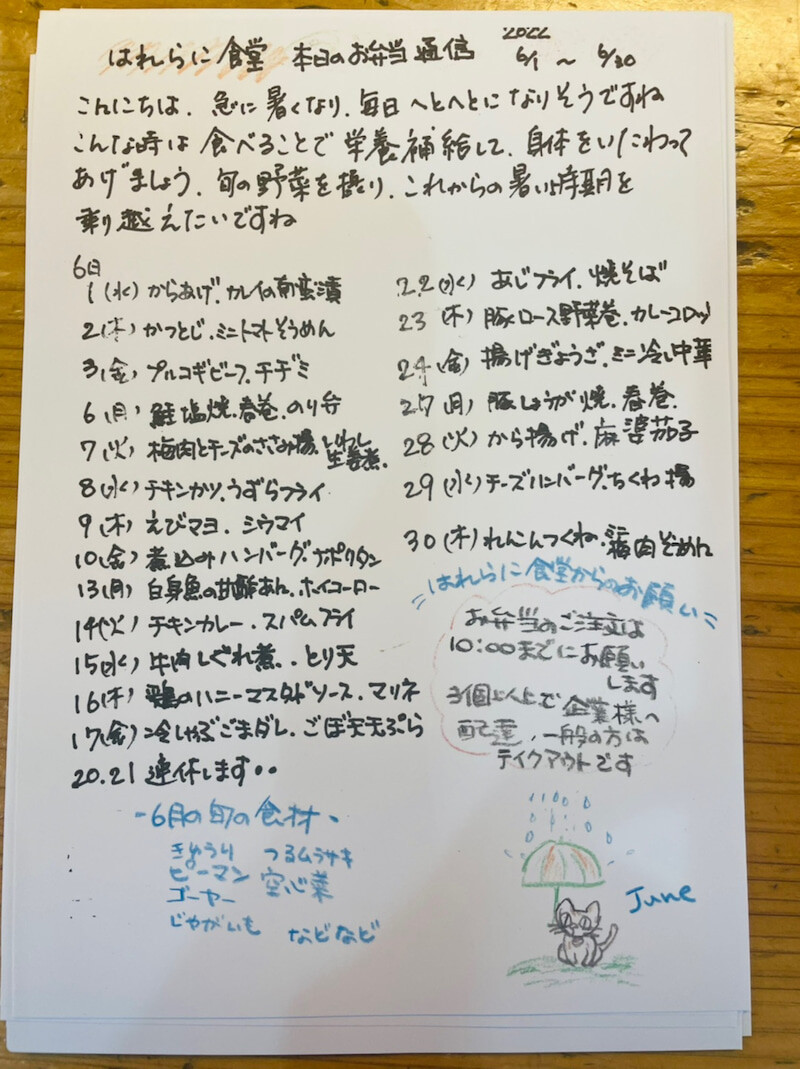 はれらに食堂 本日のお弁当通信 2022 6/1 〜 6/30
こんにちは. 急に暑くなり. 毎日へとへとになりそうですね
こんな時は食べることで栄養補給して. 身体をいたわって
あげましょう. 旬の野菜を摂り. これからの暑い時期を
乗り越えたいですね
6日
1(水) からあげ. カレイの南蛮漬
2(木) かつとじ. ミニトマトそうめん
3(金) プルコギビーフ. チヂミ
6(月) 鮭塩焼. 春巻. のり弁
7(火) 梅肉とチーズのささみ揚. いわし生姜煮.
8(水) チキンカツ. うずらフライ
9(木) えびマヨ. シウマイ
10(金) 煮込みハンバーグ. ナポリタン
13(月) 白身魚の甘酢あん. ホイコーロー
14(火) チキンカレー. スパムフライ
15(水) 牛肉しぐれ煮.. とり天
16(木) 鶏のハニーマスタードソース. マリネ
17(金) 冷しゃぶごまダレ. ごぼ天天ぷら
20.21 連休します..
22(水) あじフライ. 焼そば
23(木) 豚ロース野菜巻. カレーコロッケ
24(金) 揚げぎょうざ. ミニ冷し中華
27(月) 豚しょうが焼. 春巻.
28(火) から揚げ. 麻婆茄子
29(水) チーズハンバーグ. ちくわ揚
30(木) れんこんつくね. ミニ梅肉そめん
〃はれらに食堂からのお願い〃
お弁当のご注文は
10:00までにお願い
します
3個以上で企業様へ
配達, 一般の方は
テイクアウトです
-6月の旬の食材-
きゅうり つるムラサキ
ピーマン 空心菜
ゴーヤー
じゃがいも などなど
June